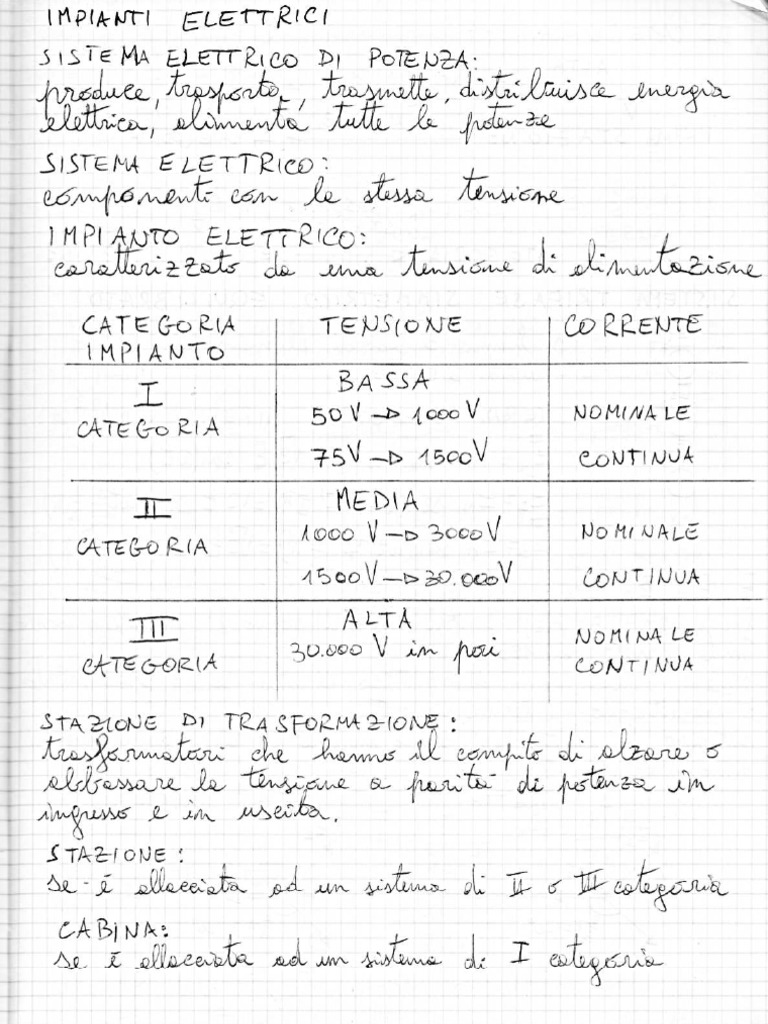 IMPIANTI ELETTRICI
SISTEMA ELETTRICO DI POTENZA:
produce, trasporta, trasmette, distribuisce energia
elettrica, alimenta tutte le potenze
SISTEMA ELETTRICO:
componenti con la stessa tensione
IMPIANTO ELETTRICO:
caratterizzato da una tensione di alimentazione
CATEGORIA IMPIANTO TENSIONE CORRENTE
I CATEGORIA BASSA
50V → 1000V NOMINALE
75V → 1500V CONTINUA
II CATEGORIA MEDIA
1000 V → 3000V NOMINALE
1500V → 30.000V CONTINUA
III CATEGORIA ALTA
30.000 V in poi NOMINALE
CONTINUA
STAZIONE DI TRASFORMAZIONE:
trasformatori che hanno il compito di alzare o
abbassare la tensione a parità di potenza in
ingresso e in uscita.
STAZIONE:
se è allacciata ad un sistema di II o III categoria
CABINA:
se è allacciata ad un sistema di I categoria